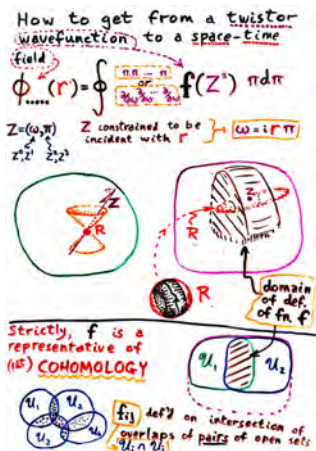 How to get from a twistor
wavefunction to a space-time
field
ϕ..... (r) = ∮ ππ...π f(Zᵅ) πdπ
or
∂/∂ω ∂/∂ω ... ∂/∂ω
Z=(ω,π) Z constrained to be
incident with r } ω=irπ
Z⁰,Z¹ Z²,Z³
Z
R
Z
R
R
domain
of def.
of fn. f
Strictly, f is a
representative of
(1st) COHOMOLOGY
U₁ U₂
U₁ U₂
U₃ U₄
fij def'd on intersection of
overlaps of pairs of open sets
Ui ∩ Uj